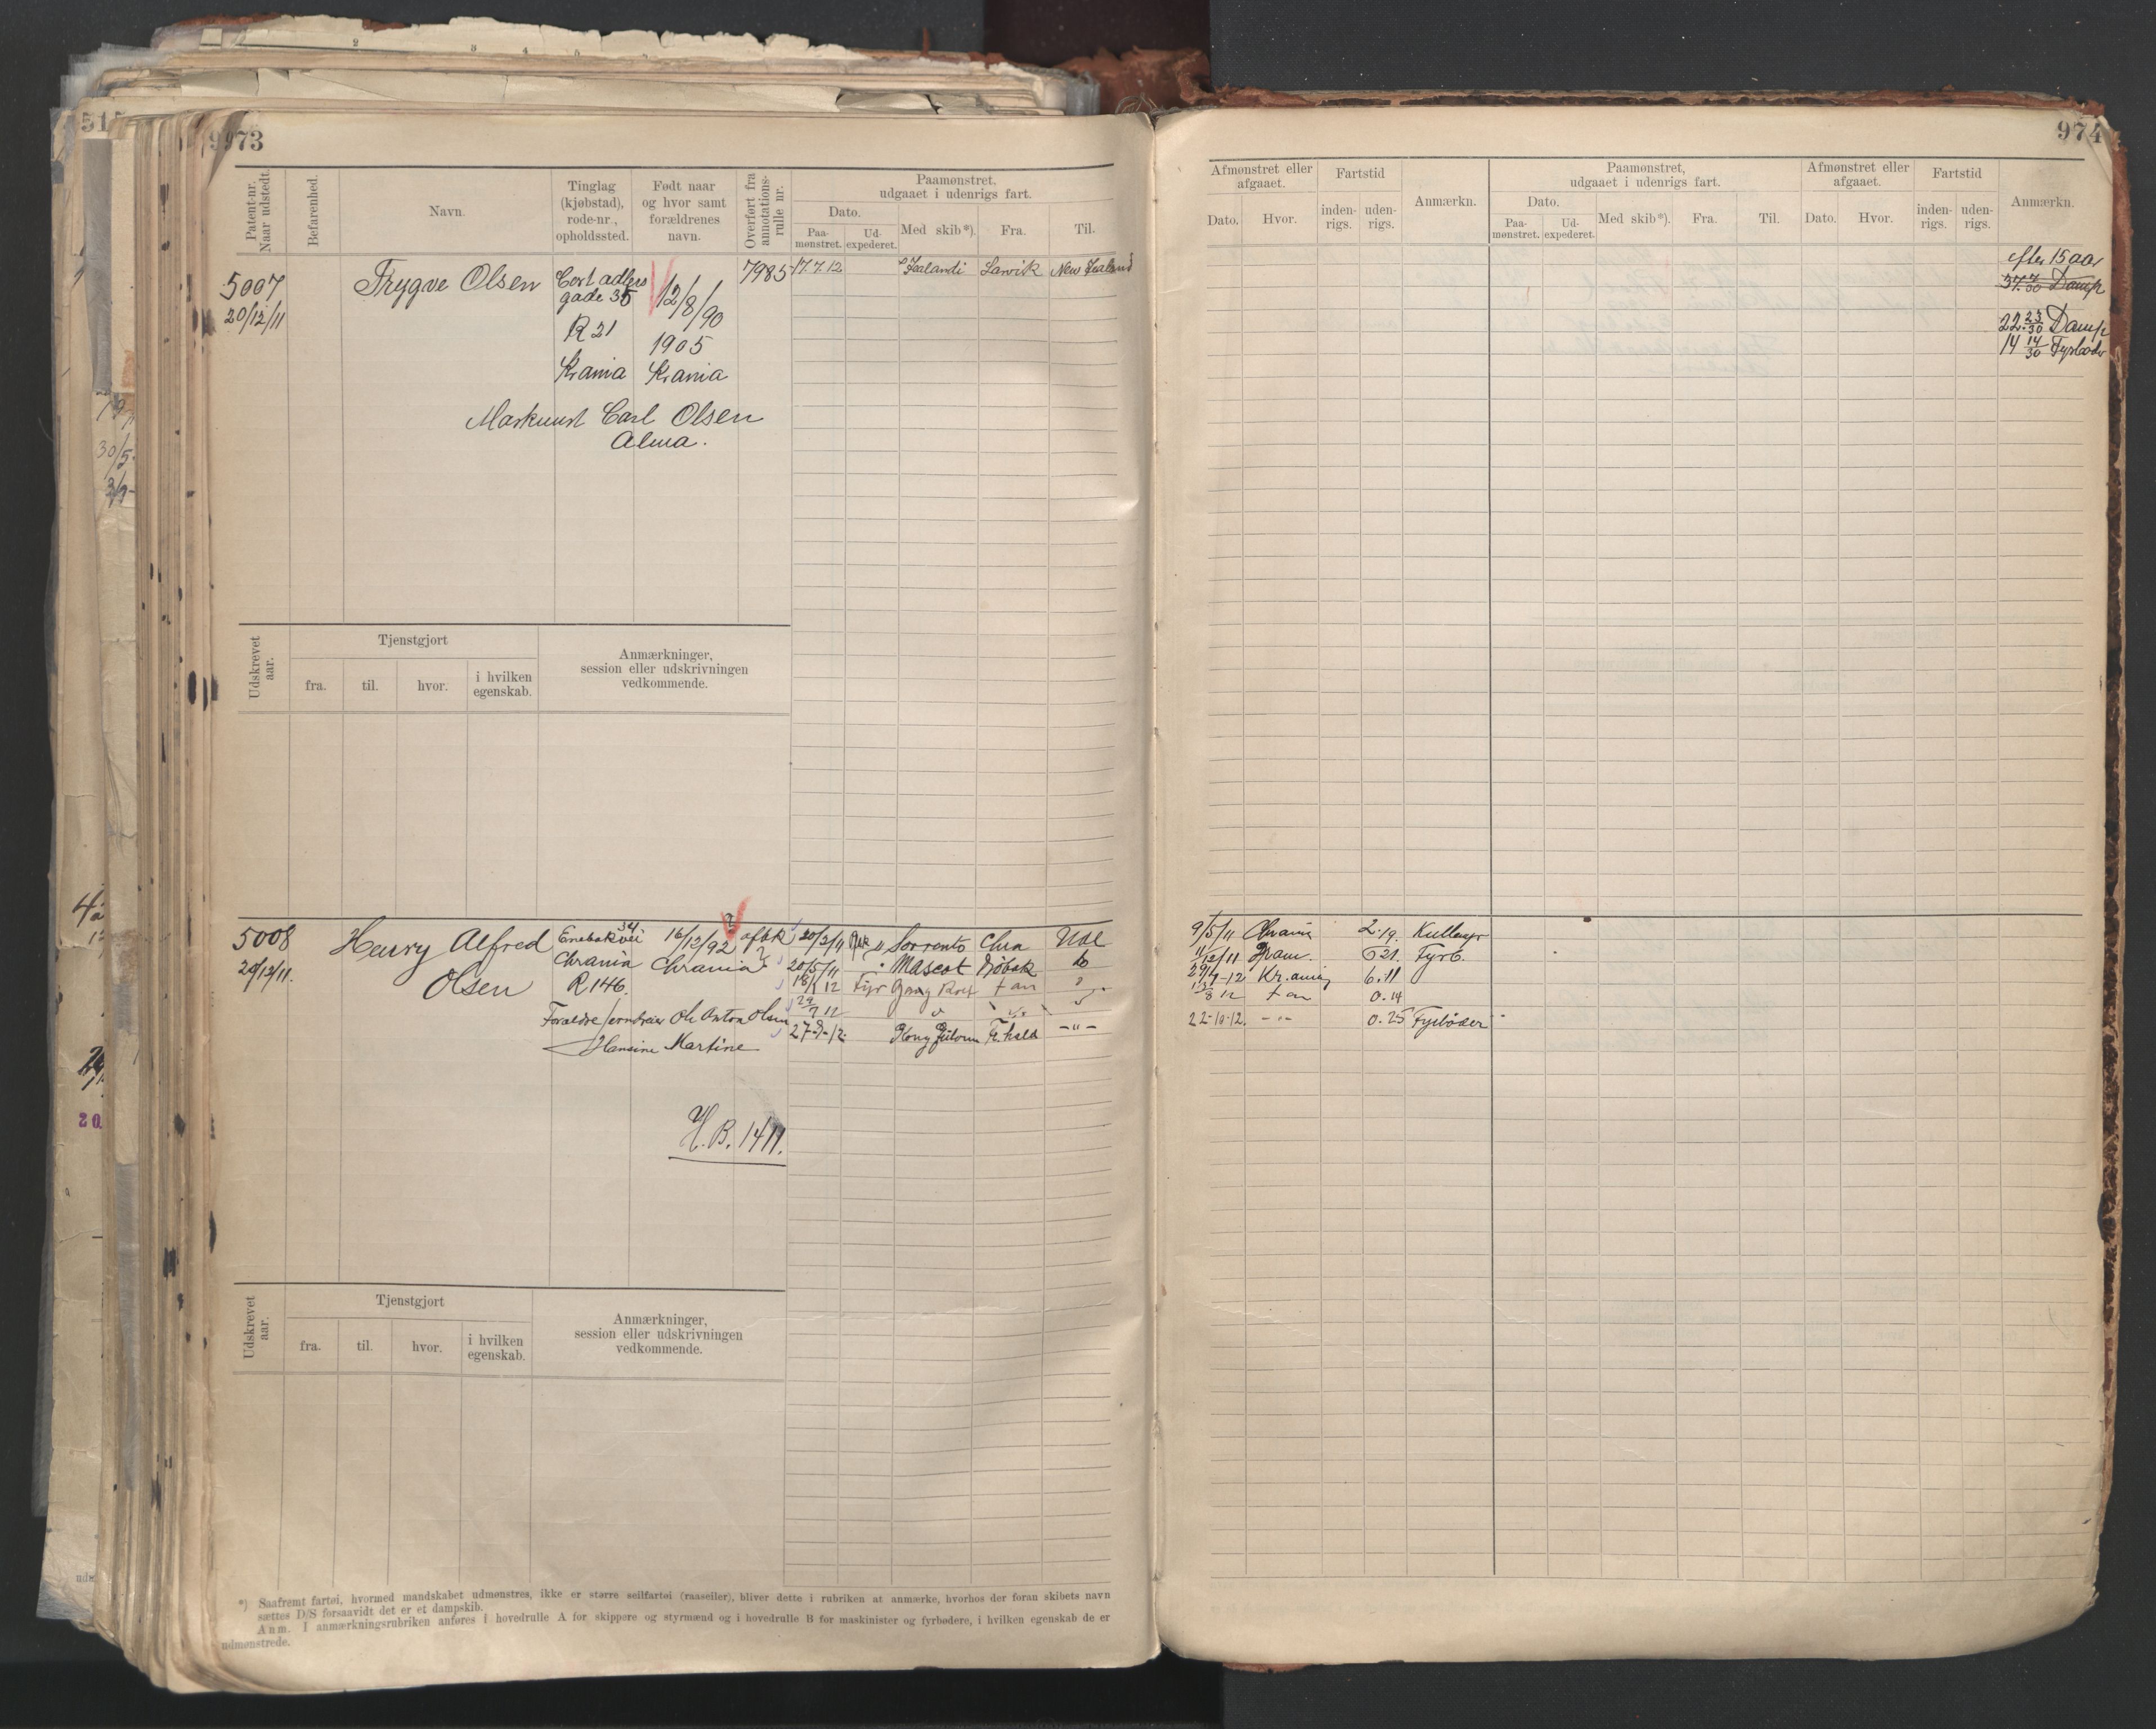 973
Patent-nr. Naar udstedt.
Befarenhed.
Navn.
Tinglag (kjøbstad), rode-nr., opholdssted.
Født naar og hvor samt forældrenes navn.
Overført fra annotations-rulle nr.
Paamønstret, udgaaet i udenrigs fart.
Dato.
Paa-mønstret.
Ud-expederet.
Med skib*).
Fra.
Til.
5007
20/12/11
Trygve Olsen
Cort adlers
gade 35
R 21
Krania
12/8/90
1905
Krania
7985
17.7.12
Sealandi Larvik New Zealand
Maskinist Carl Olsen
Alma.
Udskrevet aar.
Tjenstgjort
fra.
til.
hvor.
i hvilken egenskab.
Anmærkninger, session eller udskrivningen vedkommende.
5008
20/12/11.
Henry Alfred
Olsen
Enebakvei 34
Chrania
R 146.
16/12/92
Chrania
20/2/11 Sorrento Chra Udl
20/5/11 Mascot Drøbak do
18/1 12 Fyr Gang Rolf Fan
29/7 12
27-9-12 Kong Guttorm Fr.hald -"-
Forældre jerndreier Ole Anton Olsen
Hansine Martine
H. B. 1411.
Udskrevet aar.
Tjenstgjort
fra.
til.
hvor.
i hvilken egenskab.
Anmærkninger, session eller udskrivningen vedkommende.
*) Saafremt fartøi, hvormed mandskabet udmønstres, ikke er større seilfartøi (raaseiler), bliver dette i rubriken at anmærke, hvorhos der foran skibets navn
sættes D/S forsaavidt det er et dampskib.
Anm. I anmærkningsrubriken anføres i hovedrulle A for skippere og styrmænd og i hovedrulle B for maskinister og fyrbødere, i hvilken egenskab de er
udmønstrede.
974
Afmønstret eller afgaaet.
Dato.
Hvor.
Fartstid
inden-rigs.
uden-rigs.
Anmærkn.
Paamønstret, udgaaet i udenrigs fart.
Dato.
Paa-mønstret.
Ud-expederet.
Med skib*).
Fra.
Til.
Afmønstret eller afgaaet.
Dato.
Hvor.
Fartstid
inden-rigs.
uden-rigs.
Anmærkn.
efter 15 aar
37 7/30 Damp
22 23/30 Damp
14 14/30 Fyrbøder
9/5/11 Chrania 2.19. Kullemp
11/12/11 Dram. 6 21. Fyrb.
29/7-12 Kr.ania 6.11
13/8 12 0.14
22-10-12. -"- 0.25 Fyrbøder